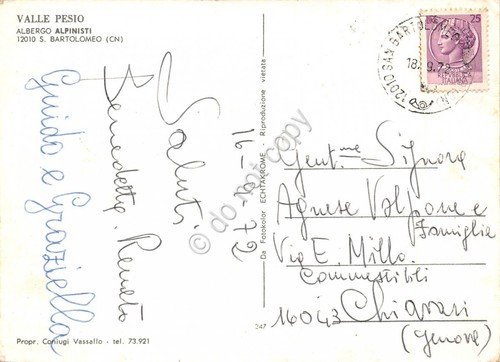 VALLE PESIO
ALBERGO ALPINISTI
12010 S. BARTOLOMEO (CN)
Saluti
Benedetta. Renato
Guido e Graziella
16-9-72
Da Fotokolor EKTAKROME - Riproduzione vietata
347
Propr. Coniugi Vassallo - tel. 73.921
25
12010 SAN BARTOL
18.9.72
Gent.me Signora
Agnese Valpone e
Famiglia
Via E. Millo
Commestibili
16043 Chiavari
(Genova)
do not copy